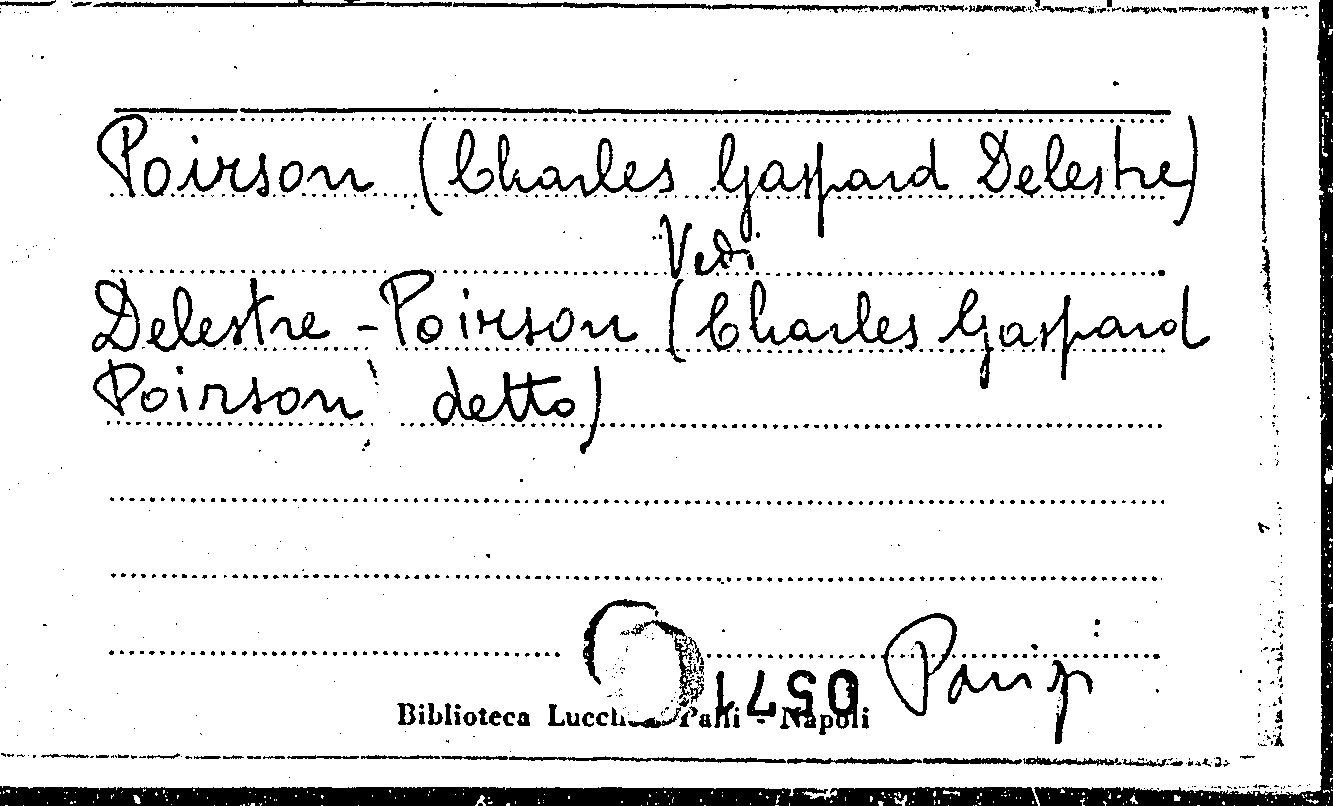 Poirson (Charles Gaspard Delestre)
Vedi
Delestre-Poirson (Charles Gaspard
Poirson detto)
0571
Biblioteca Lucchesi Palli - Napoli